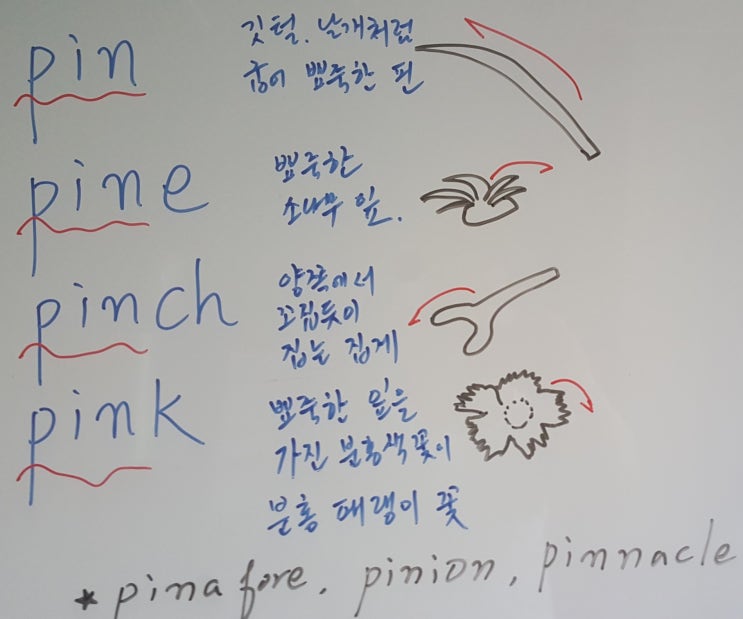 pin
깃털. 날개처럼
굽어 뾰죽한 핀
pine
뾰죽한
소나무 잎.
pinch
양쪽에서
꼬집듯이
집는 집게
pink
뾰죽한 잎을
가진 분홍색 꽃이
분홍 패랭이 꽃
* pinafore. pinion, pinnacle